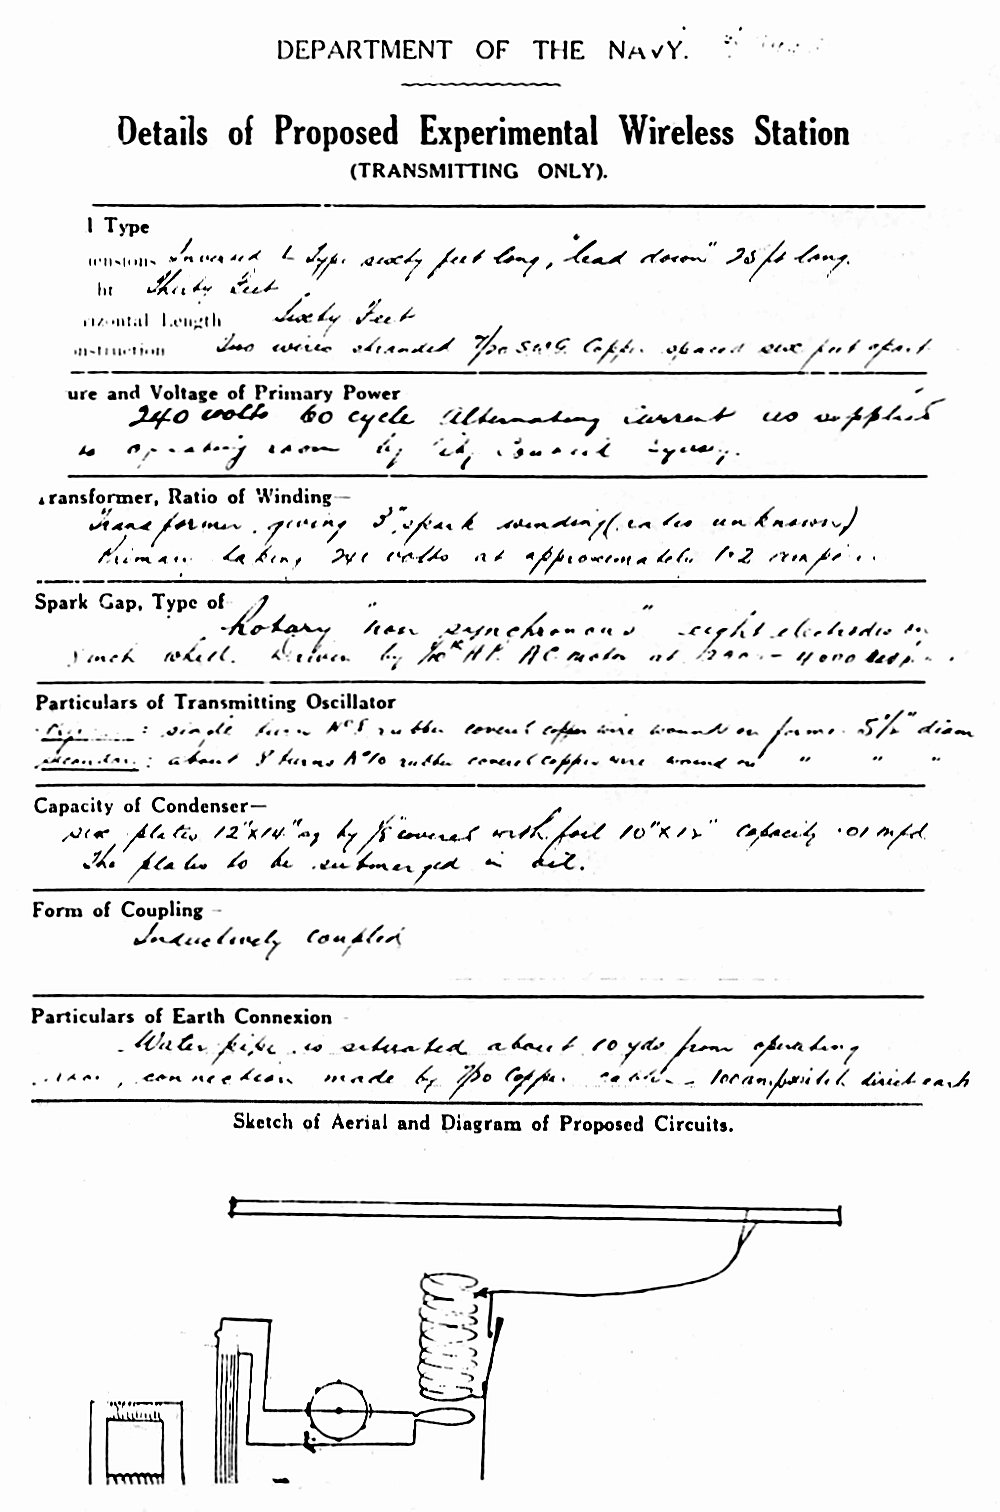 DEPARTMENT OF THE NAVY.
Details of Proposed Experimental Wireless Station
(TRANSMITTING ONLY).
l Type
ensions Inverted L Type sixty feet long, "lead down" 25 ft long.
ht Thirty Feet
rizontal Length Sixty Feet
nstruction Two wires stranded 7/20 S.W.G. Copper spaced six feet apart
ure and Voltage of Primary Power
240 volts 60 cycle alternating current as supplied
to operating room by City Council Sydney.
ransformer, Ratio of Winding—
Transformer giving 3" spark winding (ratio unknown)
Primary taking 240 volts at approximately 1·2
Spark Gap, Type of
Rotary "non synchronous" eight electrodes on
inch wheel. Driven by HP. AC motor at 4000
Particulars of Transmitting Oscillator
: single turn No 8 rubber covered copper wire wound on former 5½" diam
Secondary : about 8 turns No 10 rubber covered copper wire wound on " " "
Capacity of Condenser—
six plates 12"x14" by 1/8 covered with foil 10"x12" capacity ·01 mfd
The plates to be submerged in oil.
Form of Coupling -
Inductively coupled
Particulars of Earth Connexion -
Water pipe is situated about 10 yds from operating
room, connection made by 7/20 Copper direct earth
Sketch of Aerial and Diagram of Proposed Circuits.